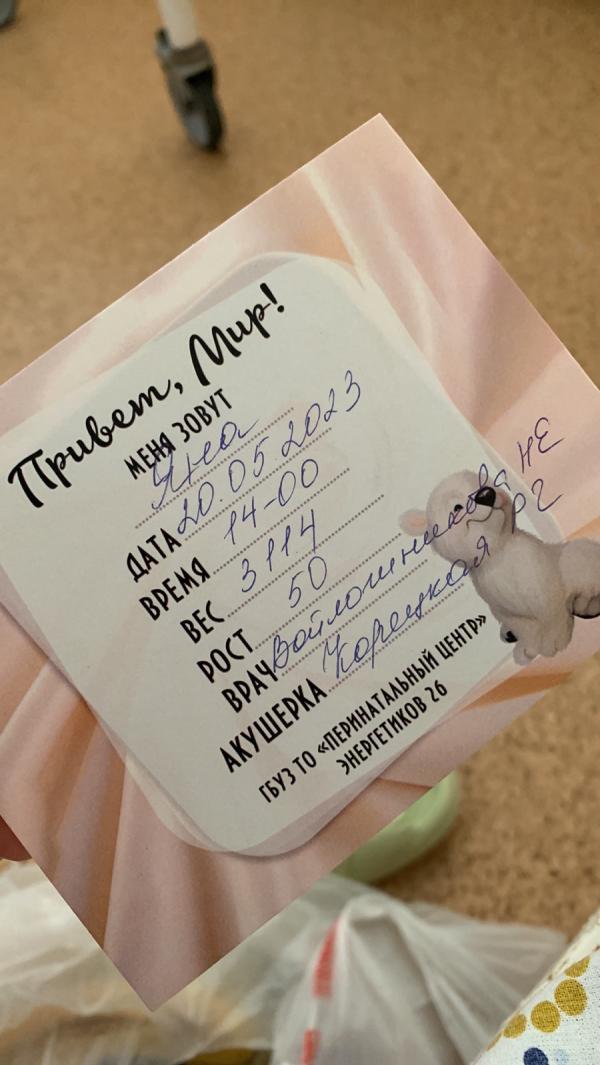 Привет, Мир!
МЕНЯ ЗОВУТ
Яна
ДАТА 20.05.2023
ВРЕМЯ 14-00
ВЕС 3114
РОСТ 50
ВРАЧ Войлошникова НЕ
АКУШЕРКА Корецкая РГ
ГБУЗ ТО «ПЕРИНАТАЛЬНЫЙ ЦЕНТР»
ЭНЕРГЕТИКОВ 26